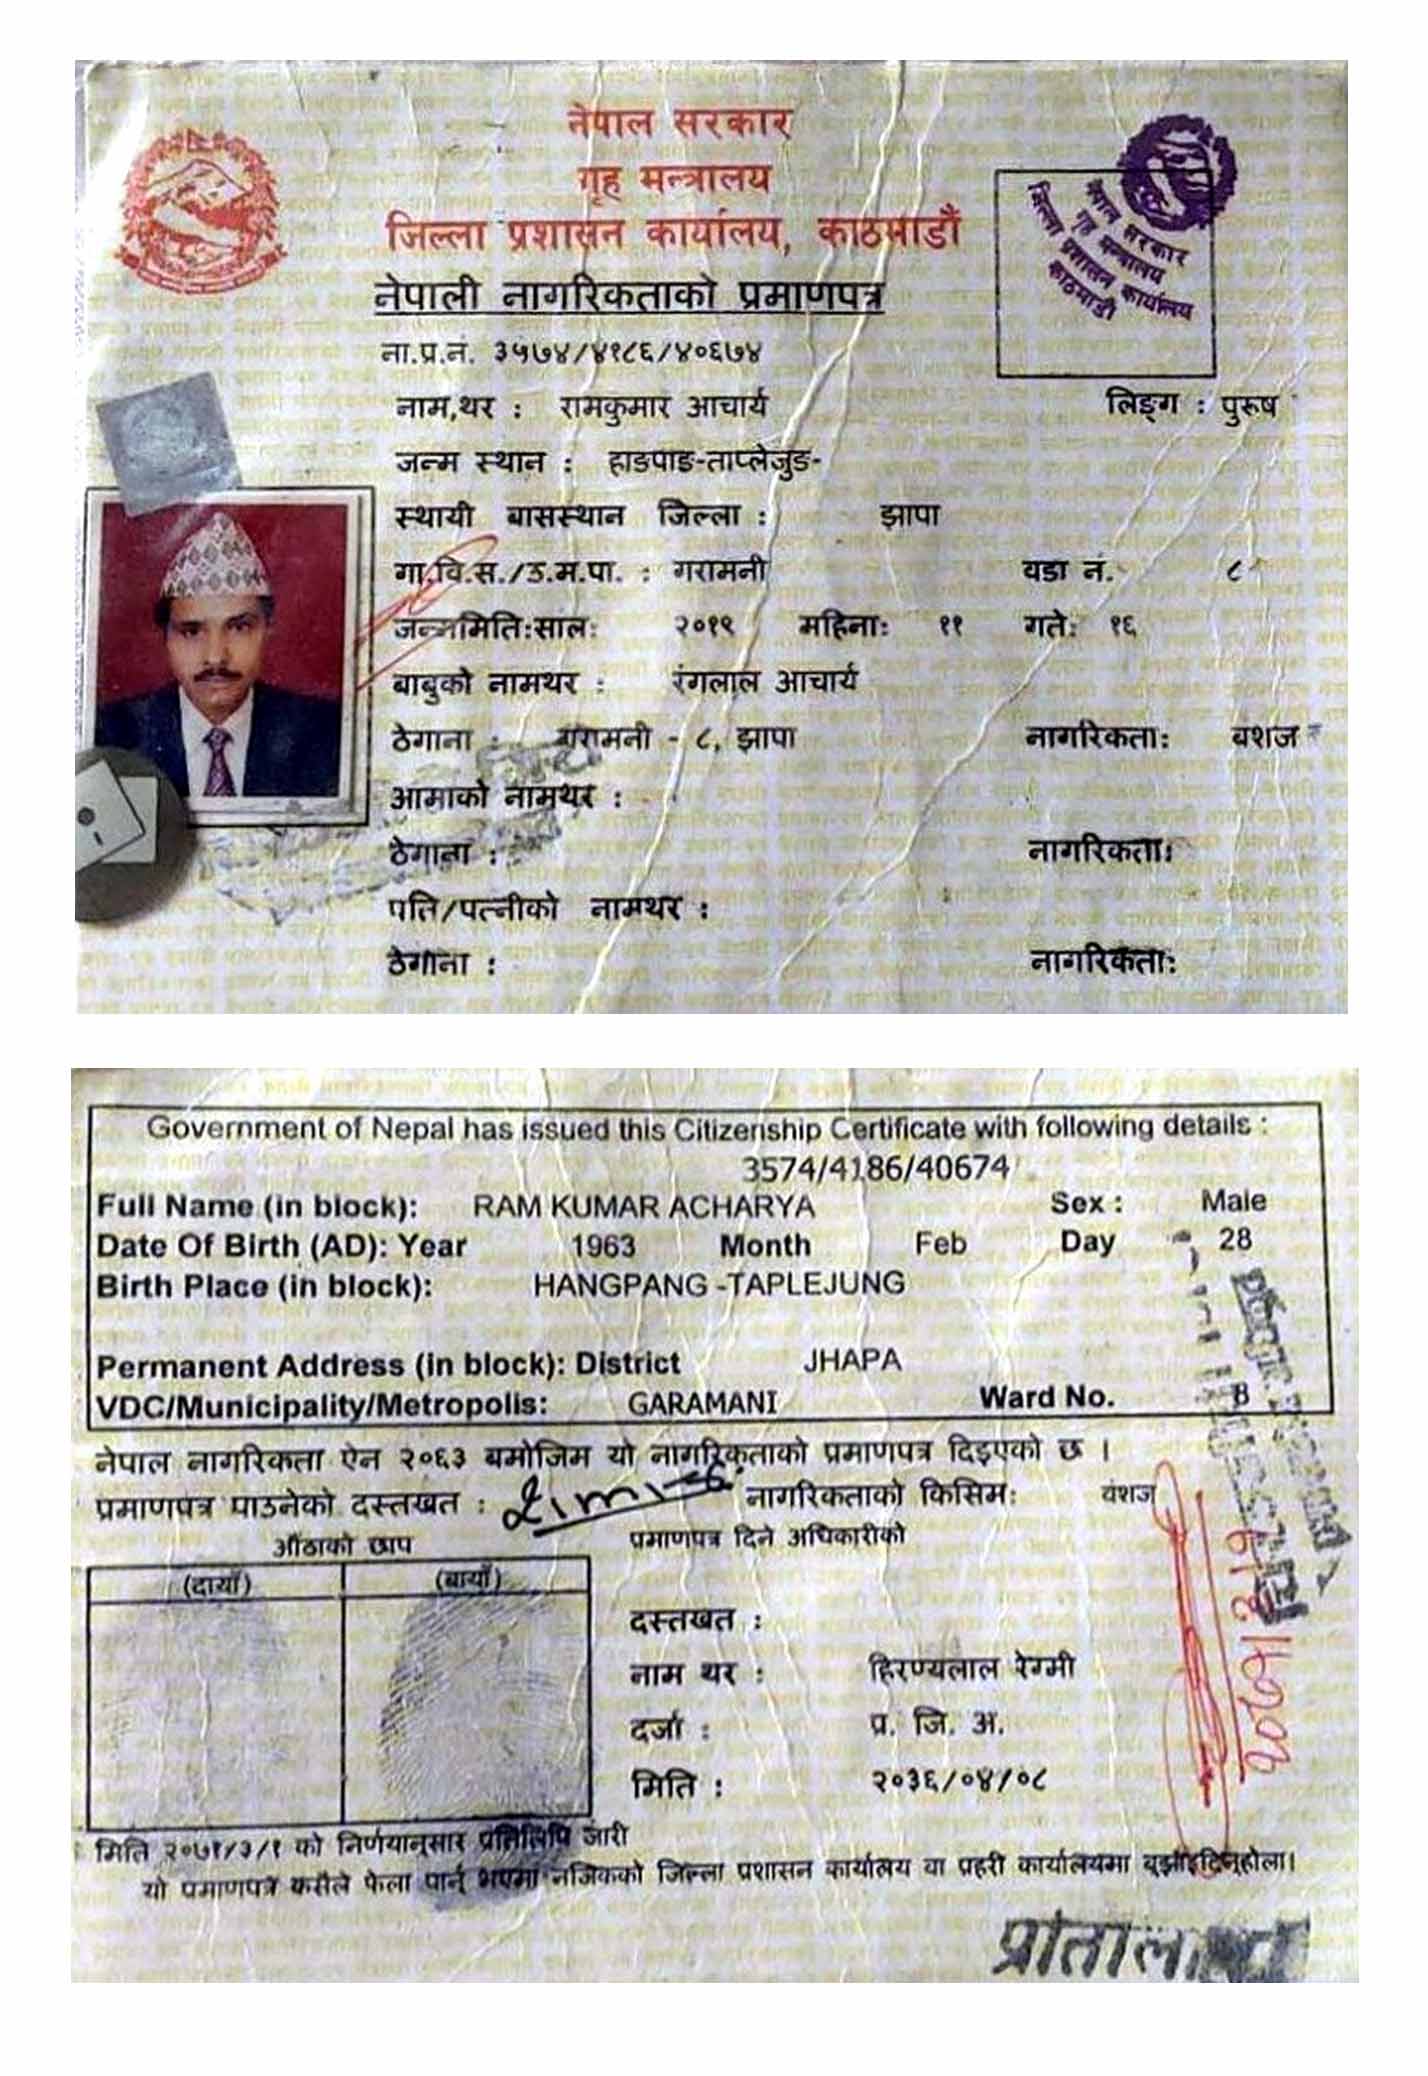 नेपाल सरकार
गृह मन्त्रालय
जिल्ला प्रशासन कार्यालय, काठमाडौं
नेपाली नागरिकताको प्रमाणपत्र
नेपाल सरकार
गृह मन्त्रालय
जिल्ला प्रशासन कार्यालय
काठमाडौं
ना.प्र.नं. ३५७४/४१८६/४०६७४
नाम,थर : रामकुमार आचार्य लिङ्ग : पुरूष
जन्म स्थान : हाङपाङ-ताप्लेजुङ-
स्थायी बासस्थान जिल्ला : झापा
गा.वि.स./उ.म.पा. : गरामनी वडा नं. ८
जन्ममिति:साल: २०१९ महिना: ११ गते: १६
बाबुको नामथर : रंगलाल आचार्य
ठेगाना : गरामनी - ८, झापा नागरिकता: वशज
आमाको नामथर :
ठेगाना : नागरिकता:
पति/पत्नीको नामथर :
ठेगाना : नागरिकता:
Government of Nepal has issued this Citizenship Certificate with following details :
3574/4186/40674
Full Name (in block): RAM KUMAR ACHARYA Sex : Male
Date Of Birth (AD): Year 1963 Month Feb Day 28
Birth Place (in block): HANGPANG -TAPLEJUNG
Permanent Address (in block): District JHAPA
VDC/Municipality/Metropolis: GARAMANI Ward No. 8
नेपाल नागरिकता ऐन २०६३ बमोजिम यो नागरिकताको प्रमाणपत्र दिइएको छ ।
प्रमाणपत्र पाउनेको दस्तखत : नागरिकताको किसिम: वंशज
औंठाको छाप प्रमाणपत्र दिने अधिकारीको
(दायाँ) (बायाँ)
दस्तखत :
नाम थर : हिरण्यलाल रेग्मी
दर्जा : प्र. जि. अ.
मिति : २०३६/०४/०८
मिति २०७१/३/१ को निर्णयानुसार प्रतिलिपि जारी
यो प्रमाणपत्र कसैले फेला पार्नु भएमा नजिकको जिल्ला प्रशासन कार्यालय वा प्रहरी कार्यालयमा बुझाईदिनुहोला।